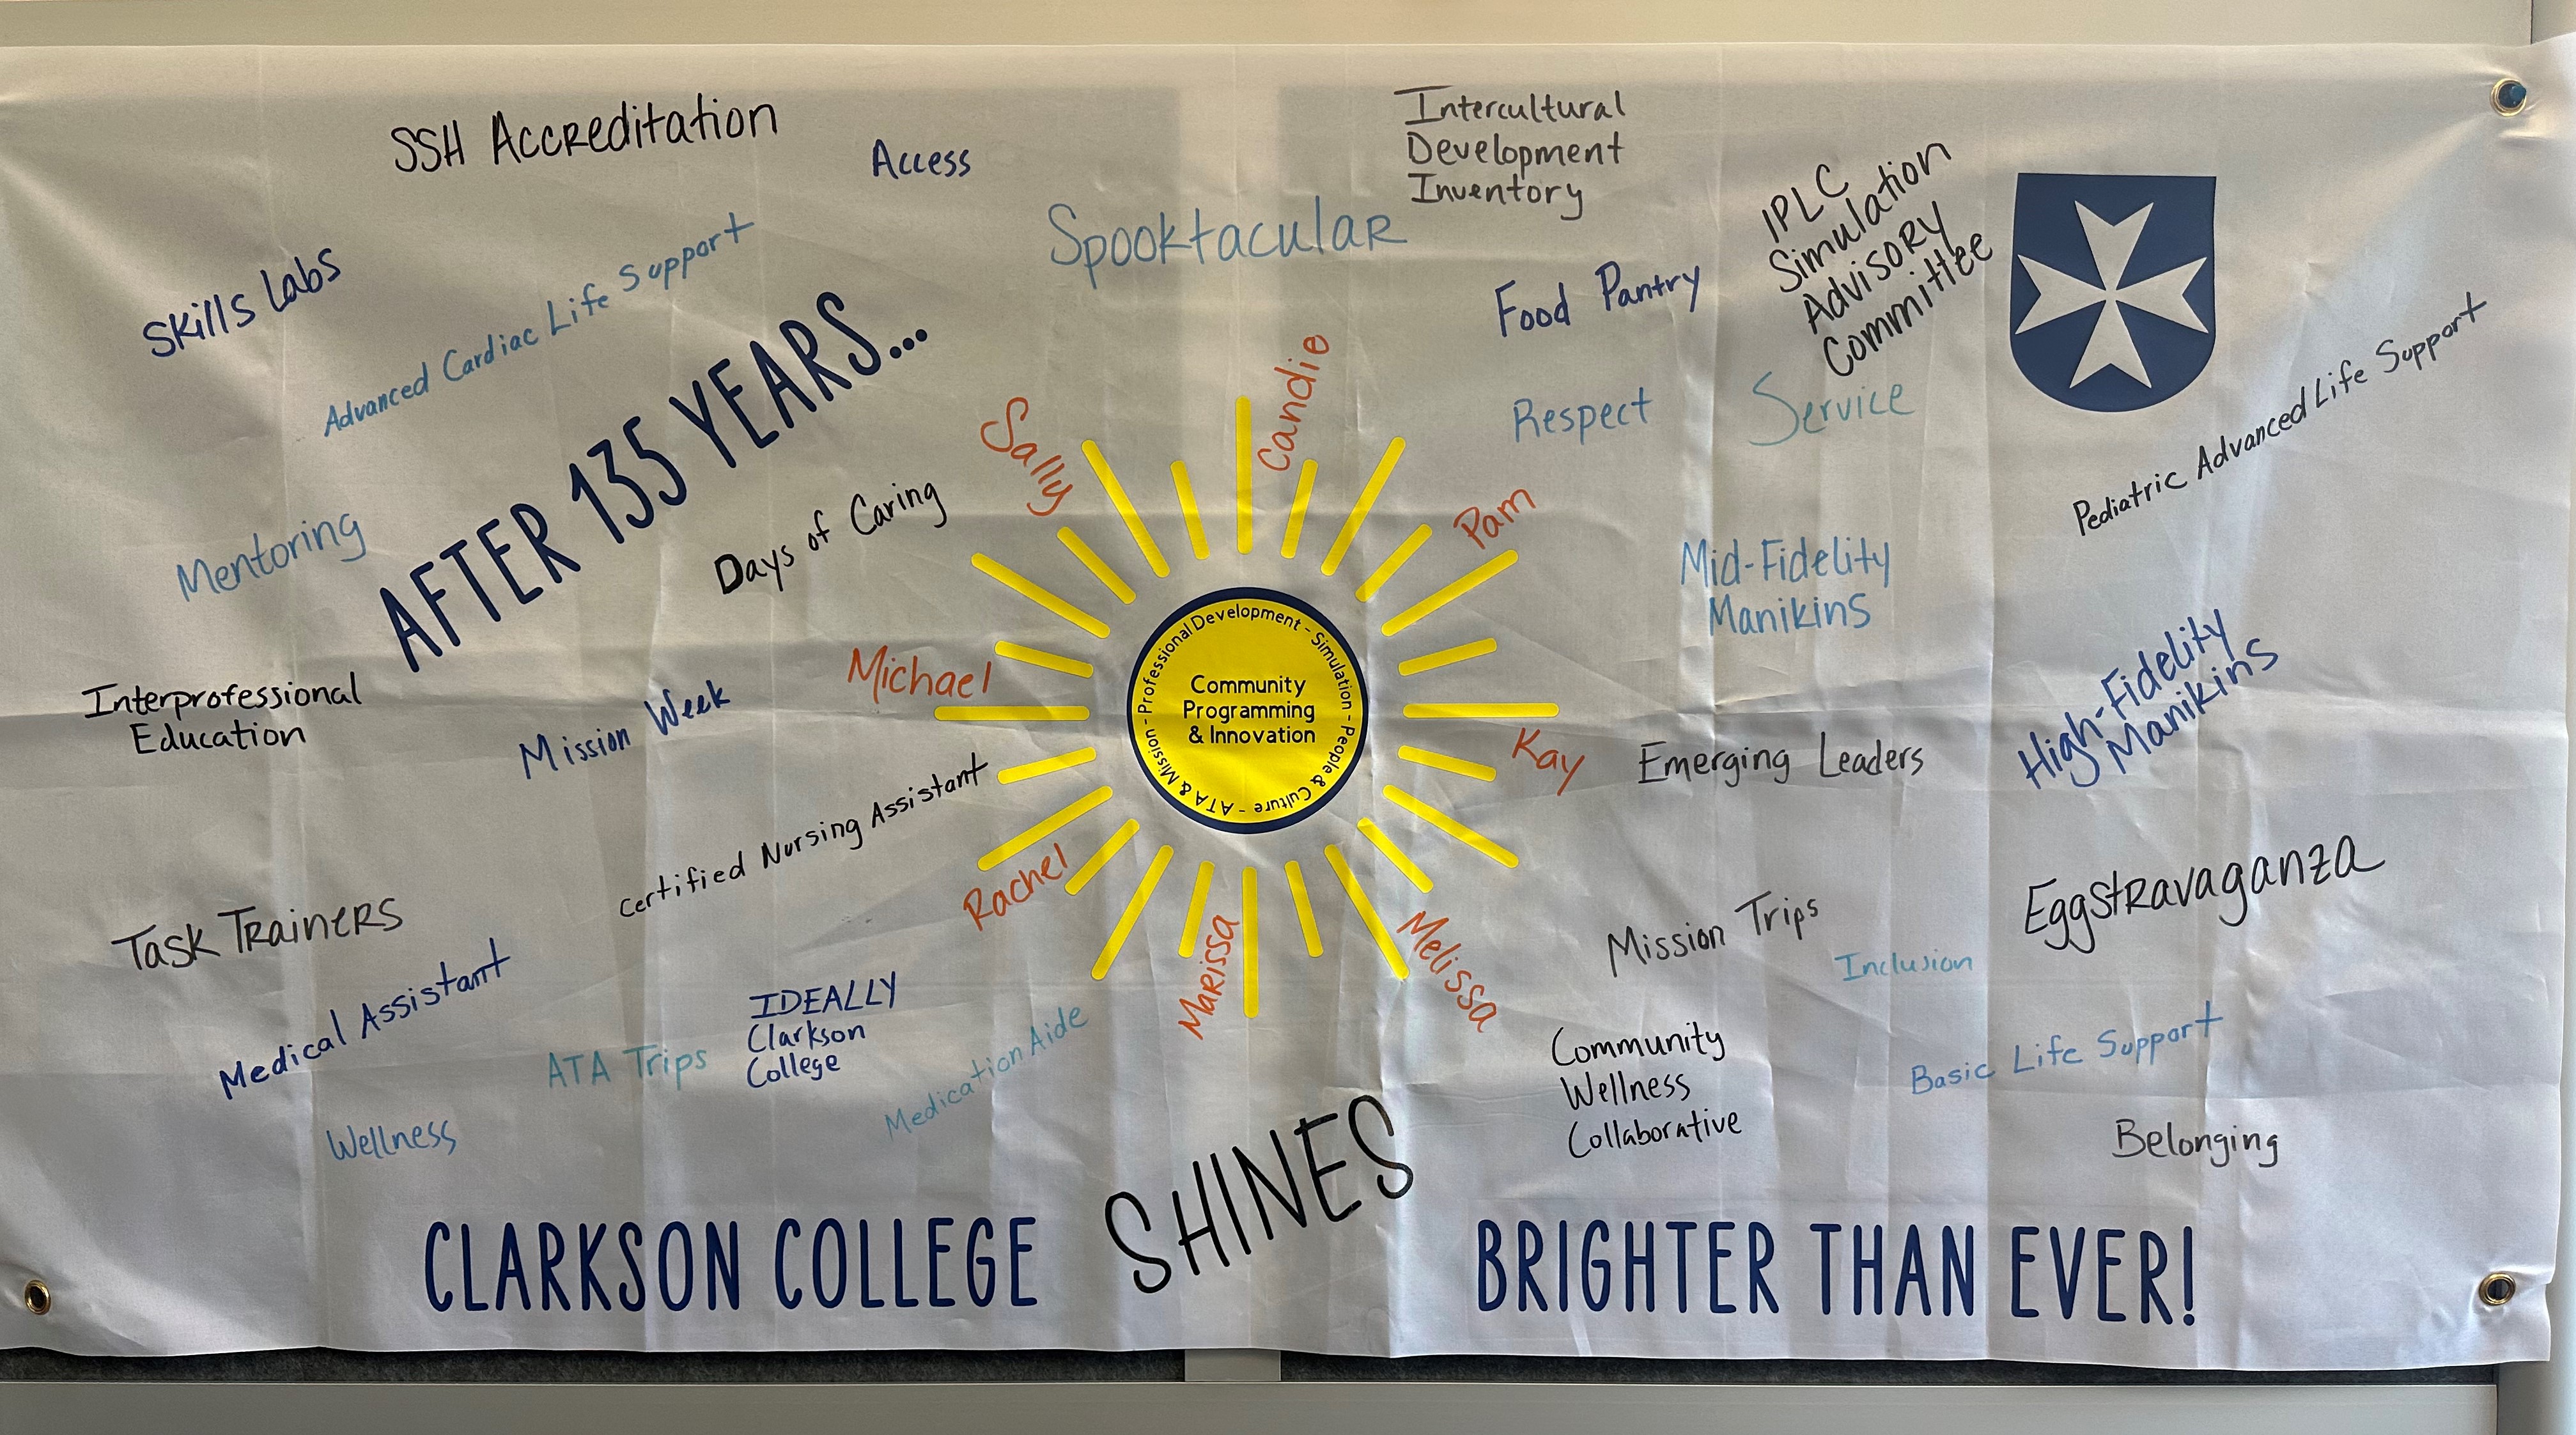 SSH Accreditation
Access
Intercultural
Development
Inventory
Spooktacular
IPLC
Simulation
Advisory
Committee
Skills Labs
Advanced Cardiac Life Support
Food Pantry
AFTER 135 YEARS...
Sally
Candie
Respect
Service
Pediatric Advanced Life Support
Mentoring
Days of Caring
Pam
Mid-Fidelity
Manikins
Michael
Professional Development - Simulation - People & Culture - ATA & Mission -
Community
Programming
& Innovation
High-Fidelity
Manikins
Interprofessional
Education
Mission Week
Kay
Emerging Leaders
Certified Nursing Assistant
Rachel
Marissa
Melissa
Eggstravaganza
Task Trainers
Mission Trips
Inclusion
Medical Assistant
IDEALLY
Clarkson
College
ATA Trips
Medication Aide
Community
Wellness
Collaborative
Basic Life Support
Wellness
Belonging
CLARKSON COLLEGE SHINES BRIGHTER THAN EVER!